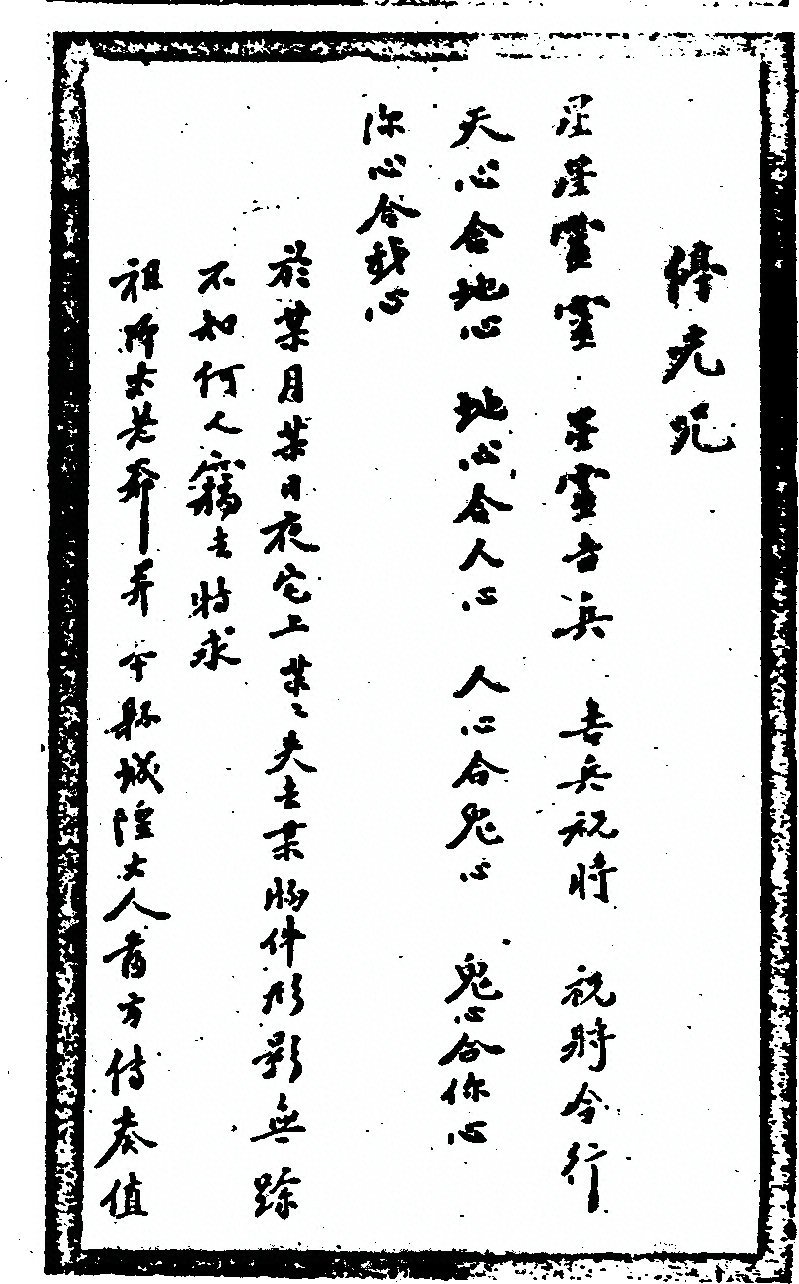 傳光咒
星星靈靈 星靈吉兵 吉兵祝將 祝將令行
天心合地心 地心合人心 人心合鬼心 鬼心合你心
你心合我心
於某月某日夜宅上某〻失去某物件形影無踪
不知何人竊去特求
祖師太老爺 并 本縣城隍大人當方傳奏值